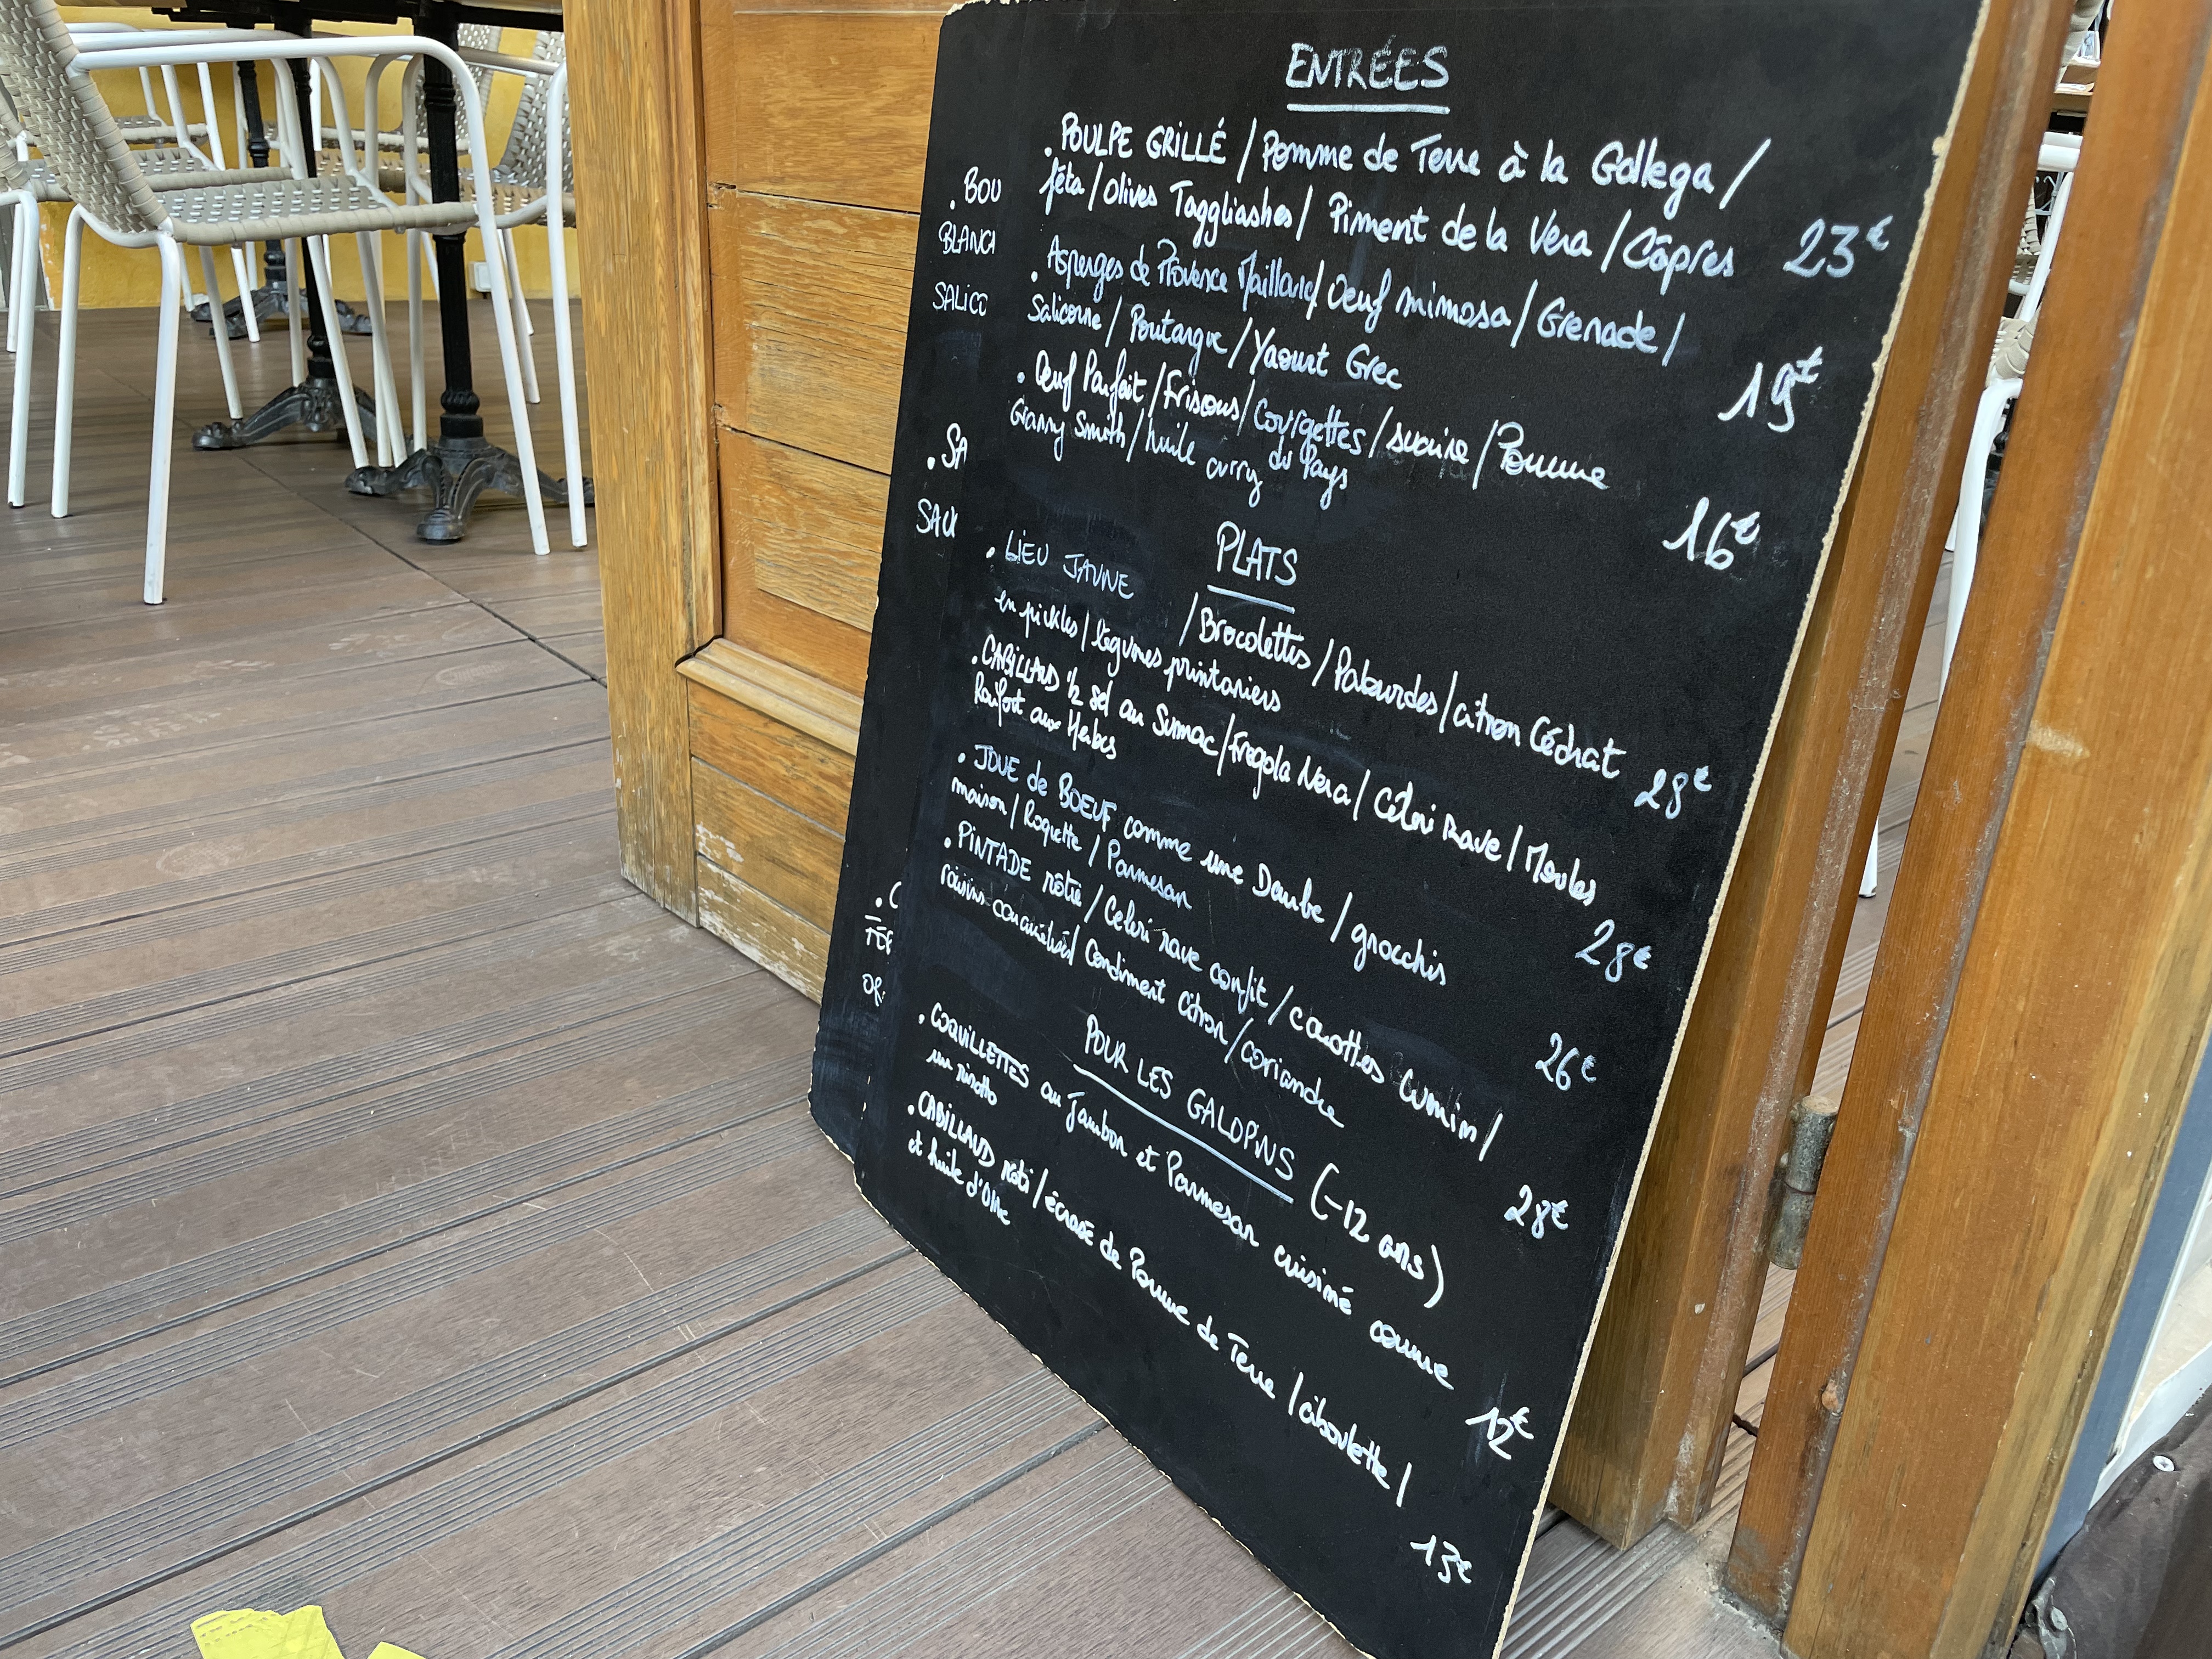 ENTRÉES
. POULPE GRILLÉ / Pomme de Terre à la Gallega /
féta / Olives Taggliashes / Piment de la Vera / Câpres 23€
. Asperges de Provence Maillard / Oeuf mimosa / Grenade /
Salicorne / Poutargue / Yaourt Grec 19€
. Oeuf Parfait / Frisous / Courgettes / sucrine / Pomme
Granny Smith / huile curry du Pays 16€
PLATS
. LIEU JAUNE / Brocolettis / Palourdes / citron Cédrat
en pickles / légumes printaniers 28€
. CABILLAUD 1/2 sel au Sumac / Fregola Nera / Céleri Rave / Moules
Raifort aux Herbes 28€
. JOUE de BOEUF comme une Daube / gnocchis
maison / Roquette / Parmesan 26€
. PINTADE rôtie / Céleri rave confit / carottes cumin /
raisins caramélisés / Condiment Citron / coriandre 28€
POUR LES GALOPINS (-12 ans)
. COQUILLETTES au Jambon et Parmesan cuisiné comme
un risotto 12€
. CABILLAUD rôti / écrasé de Pomme de Terre / ciboulette /
et huile d'Olive 13€
. BOU
BLANC
SALICO
. SA
SAU
. C